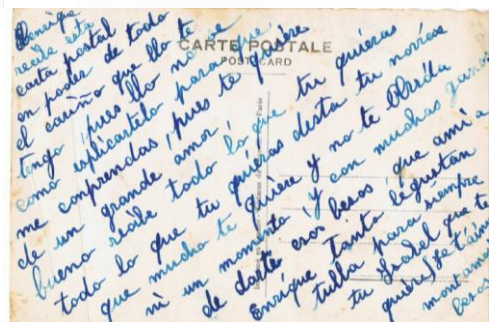 Enrrique
recibe esta
carta postal
en poder de todo
el cariño que llo te
tengo pues llo no se
como esplicartelo para que
me comprendas, pues te quiere
de un grande amor,
bueno recibe todo lo que tu quieras
todo lo que tu quieras desta tu novia
que mucho te quiere y no te
ni un momento y con muchas ganas
de darte esos besos que ami a
Enrique Tanto legustan
tulla para siempre
tu Isabel que te
quiere je t'aime
besos
CARTE POSTALE
POST CARD